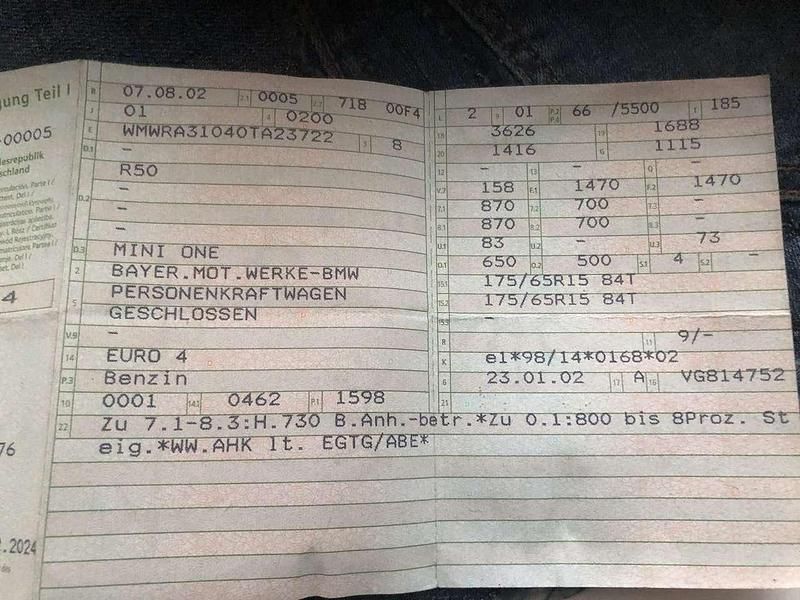 gung Teil I
-00005
desrepublik
schland
4
76
.2024
B 07.08.02 2.1 0005 2.2 718 00F4
J 01 4 0200
E WMWRA31040TA23722 3 8
D.1 –
R50
D.2 –
–
–
D.3 MINI ONE
2 BAYER.MOT.WERKE-BMW
5 PERSONENKRAFTWAGEN
GESCHLOSSEN
V.9 –
14 EURO 4
P.3 Benzin
10 0001 14.1 0462 P.1 1598
L 2 9 01 P.2 P.4 66 /5500 T 185
18 3626 19 1688
20 1416 G 1115
12 – 13 – Q –
V.7 158 F.1 1470 F.2 1470
7.1 870 7.2 700 7.3 –
8.1 870 8.2 700 8.3 –
U.1 83 U.2 – U.3 73
O.1 650 O.2 500 S.1 4 S.2 –
15.1 175/65R15 84T
15.2 175/65R15 84T
15.3 –
R 11 9/–
K e1*98/14*0168*02
6 23.01.02 17 A 16 VG814752
21
22 Zu 7.1-8.3:H.730 B.Anh.-betr.*Zu O.1:800 bis 8Proz. St
eig.*WW.AHK lt. EGTG/ABE*